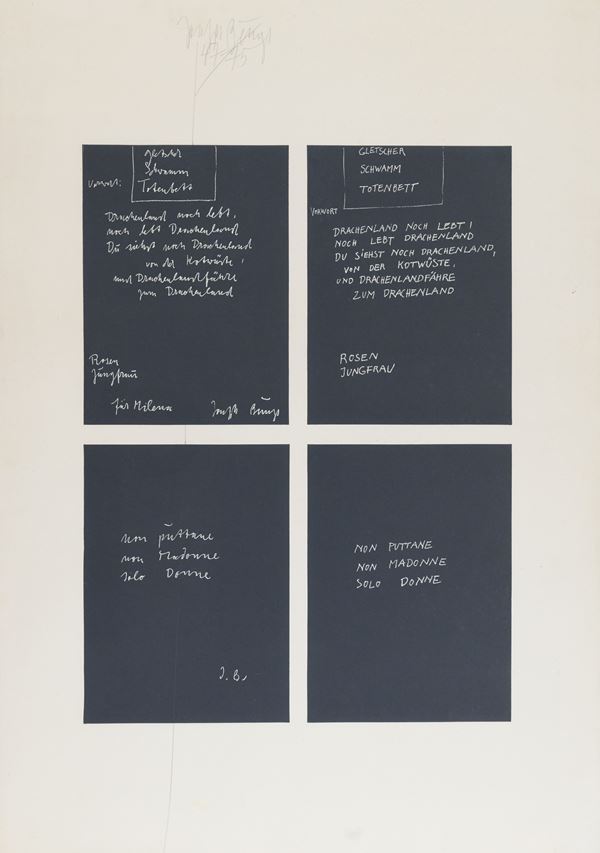 Joseph Beuys
47-75
Gletscher
Schwamm
Totenbett
Vorwort:
Drachenland noch lebt,
noch lebt Drachenland
Du siehst noch Drachenland
von der Kotwüste,
und Drachenlandfähre
zum Drachenland
Rosen
Jungfrau
für Milena
Joseph Beuys
GLETSCHER
SCHWAMM
TOTENBETT
VORWORT
DRACHENLAND NOCH LEBT!
NOCH LEBT DRACHENLAND
DU SIEHST NOCH DRACHENLAND,
VON DER KOTWÜSTE,
UND DRACHENLANDFÄHRE
ZUM DRACHENLAND
ROSEN
JUNGFRAU
non puttane
non Madonne
solo Donne
J.B.
NON PUTTANE
NON MADONNE
SOLO DONNE